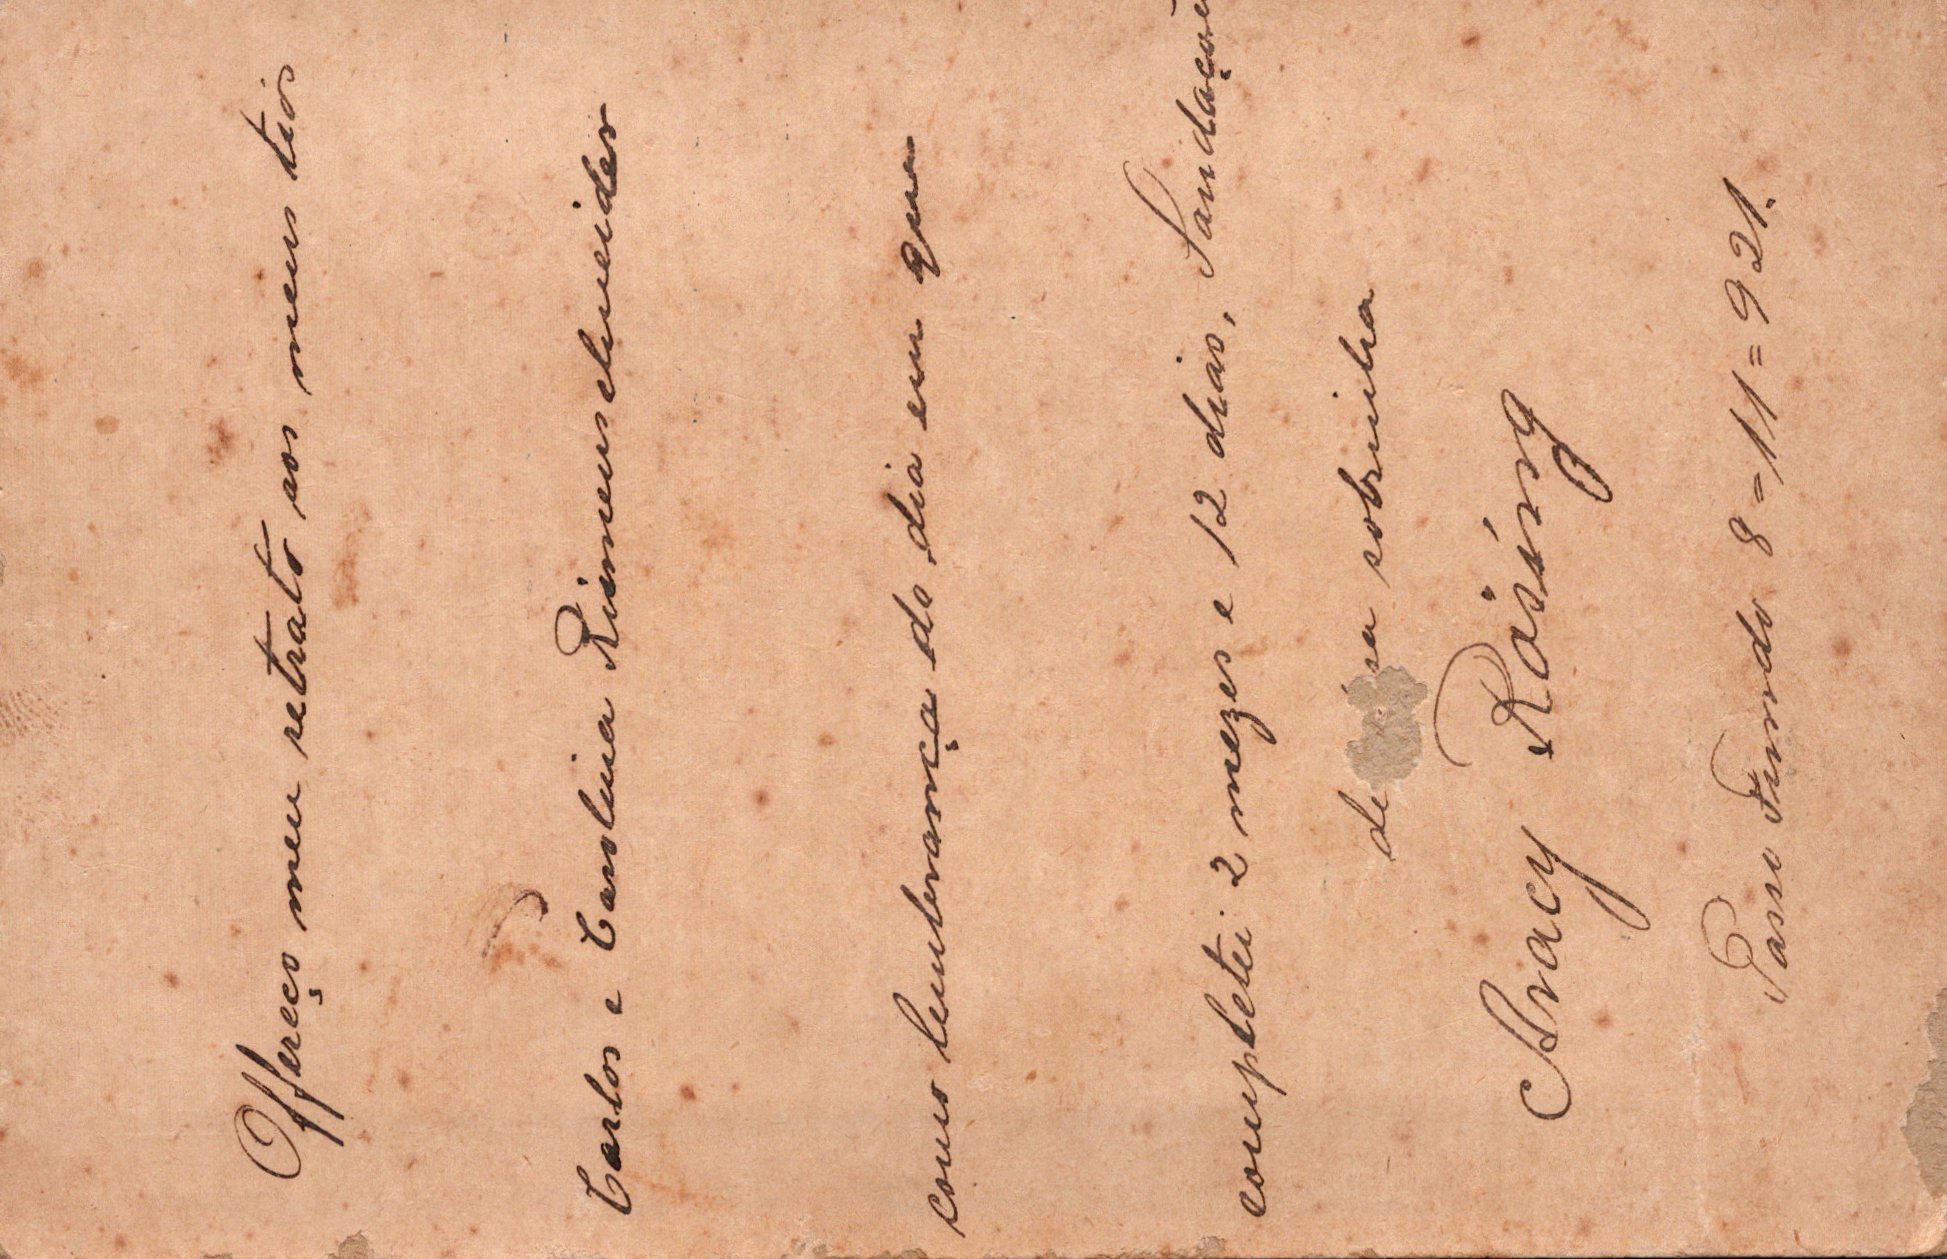 Offereço meu retrato aos meus tios
Carlos e Carolina Riemenschneider
como lembrança do dia em que
completei 2 mezes e 12 dias, Saudações
de sa sobrinha
Aracy Rösing
Passo Fundo 8=11=921.